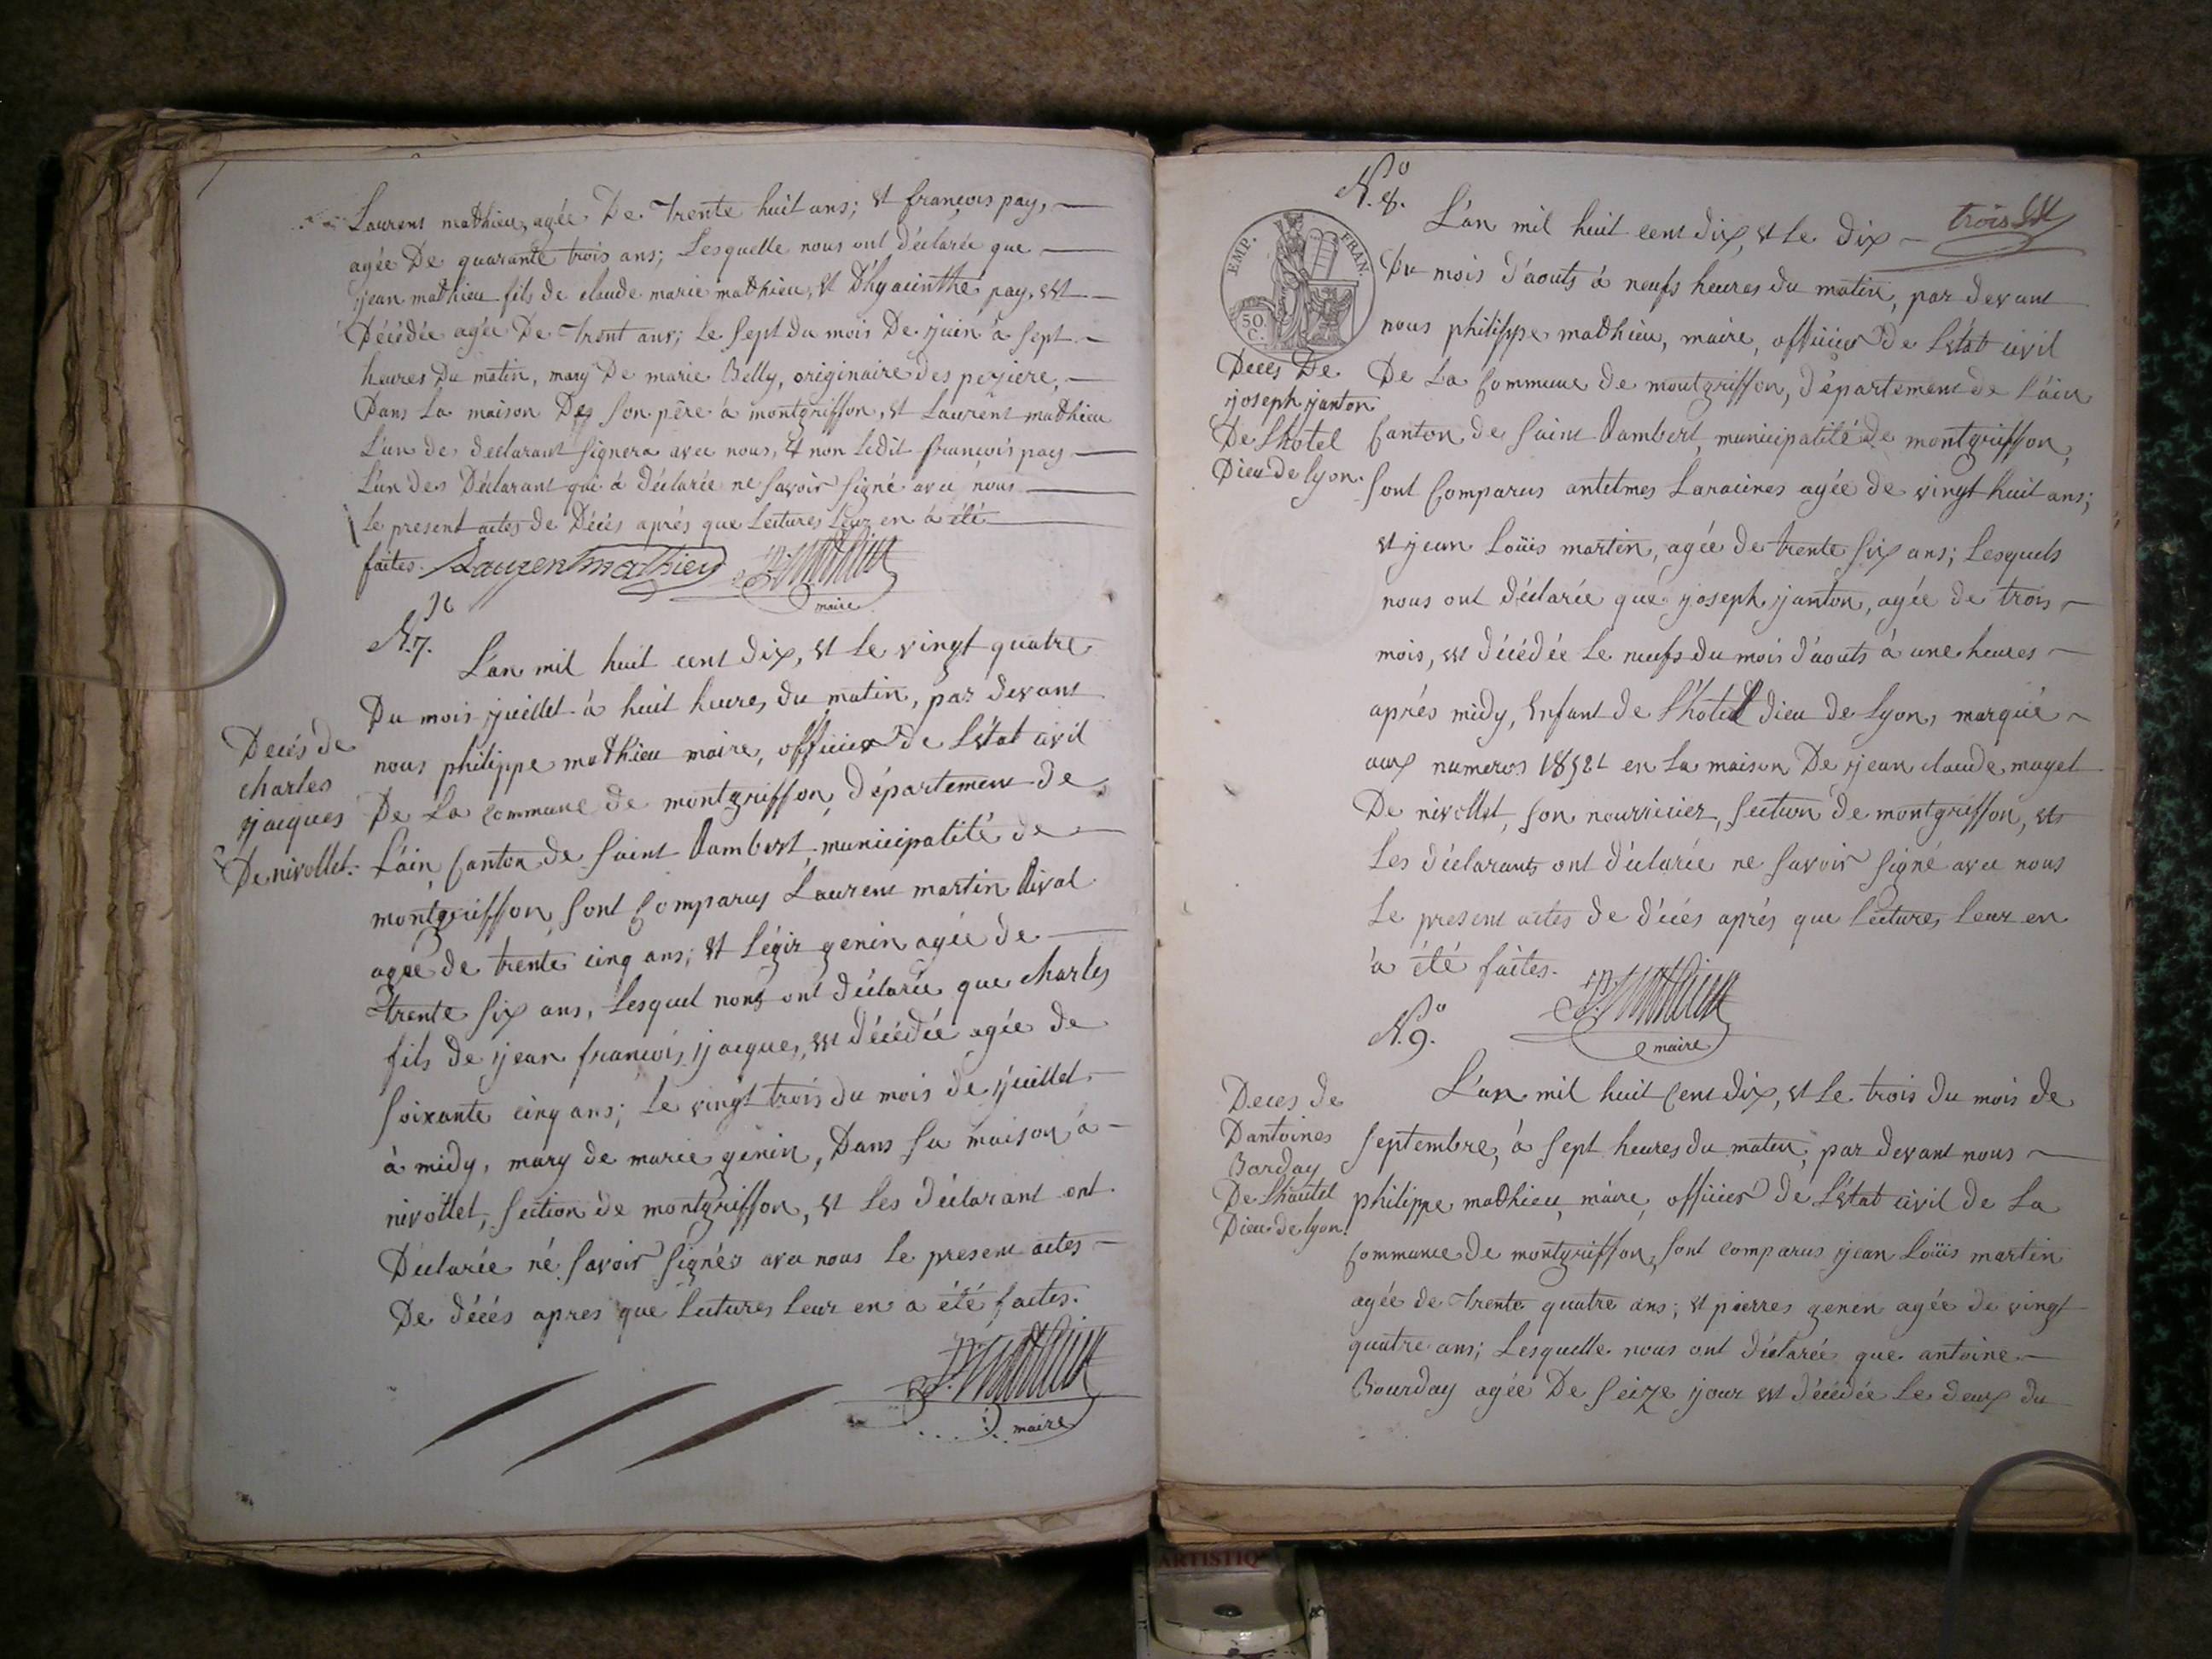 Laurent mathieu, agée De trente huit ans; et françois pay,
agée De quarante trois ans; Lesquelle nous ont déclarée que
jean mathieu fils de claude marie mathieu, et D'hyacinthe pay, est
Décédée agée De trent ans; Le sept du mois De juin à sept
heures Du matin, mary De marie Belly, originaire des peziere,
Dans La maison De son père à montgriffon, et Laurent mathieu
L'un des declarant signera avec nous, et non Ledit françois pay
L'un des Déclarant qui à déclarée ne savoir signé avec nous
Le present actes de Décés aprés que Lectures Leur en à été
faites. Laurent mathieu P. Mathieu
maire
N.º 7.
L'an mil huit cent dix, et Le vingt quatre
Du mois juillet à huit heures du matin, par devant
nous philippe mathieu maire, officier de L'état civil
De La commune de montgriffon, département de
L'ain, Canton de saint Rambert, municipalité de
montgriffon, sont comparus Laurent martin Rival
agée de trente cinq ans; et Légir genin agée de
trente six ans, Lesquel nous ont déclarée que charles
fils de jean françois jacques, est décédée agée de
soixante cinq ans; Le vingt trois du mois de juillet
à midy, mary de marie genin, Dans sa maison à
nivollet, section de montgriffon, et Les déclarant ont
Déclarée né savoir signér avec nous Le present actes
De décés apres que Lectures Leur en a été faites.
P. Mathieu
maire
Decés de
charles
jacques
De nivollet.
N.º 8.
trois
EMP. FRAN.
50.
C.
L'an mil huit cent dix, et Le dix
Du mois d'aouts à neufs heures du matin, par devant
nous philippe mathieu, maire, officier de L'état civil
De La Commune de montgriffon, département de L'ain
Canton de saint Rambert, municipalité de montgriffon,
sont Comparus antelmes Laracines agée de vingt huit ans;
et jean Loüis martin, agée de trente six ans; Lesquels
nous ont déclarée que joseph janton, agée de trois
mois, est décédée Le neufs du mois d'aouts à une heures
aprés midy, Enfant de L'hotel dieu de Lyon, marqué
aux numeros en La maison De jean claude mugel
De nivollet, son nourricier, section de montgriffon, et
Les déclarants ont déclarée ne savoir signé avec nous
Le present actes de décés aprés que Lectures Leur en
à été faites.
P. Mathieu
maire
Decés De
joseph janton
De L'hotel
Dieu de Lyon.
N.º 9.
L'an mil huit Cent dix, et Le trois du mois de
septembre, à sept heures du matin, par devant nous
philippe mathieu, maire, officier de L'état civil de La
Commune de montgriffon, sont comparus jean Loüis martin
agée de trente quatre ans; et pierres genin agée de vingt
quatre ans; Lesquelle nous ont déclarée que antoine
Bourday agée De seize jour est décédée Le deux du
Deces de
Dantoines
Borday
De L'hautel
Dieu de lyon.
ARTISTIQ